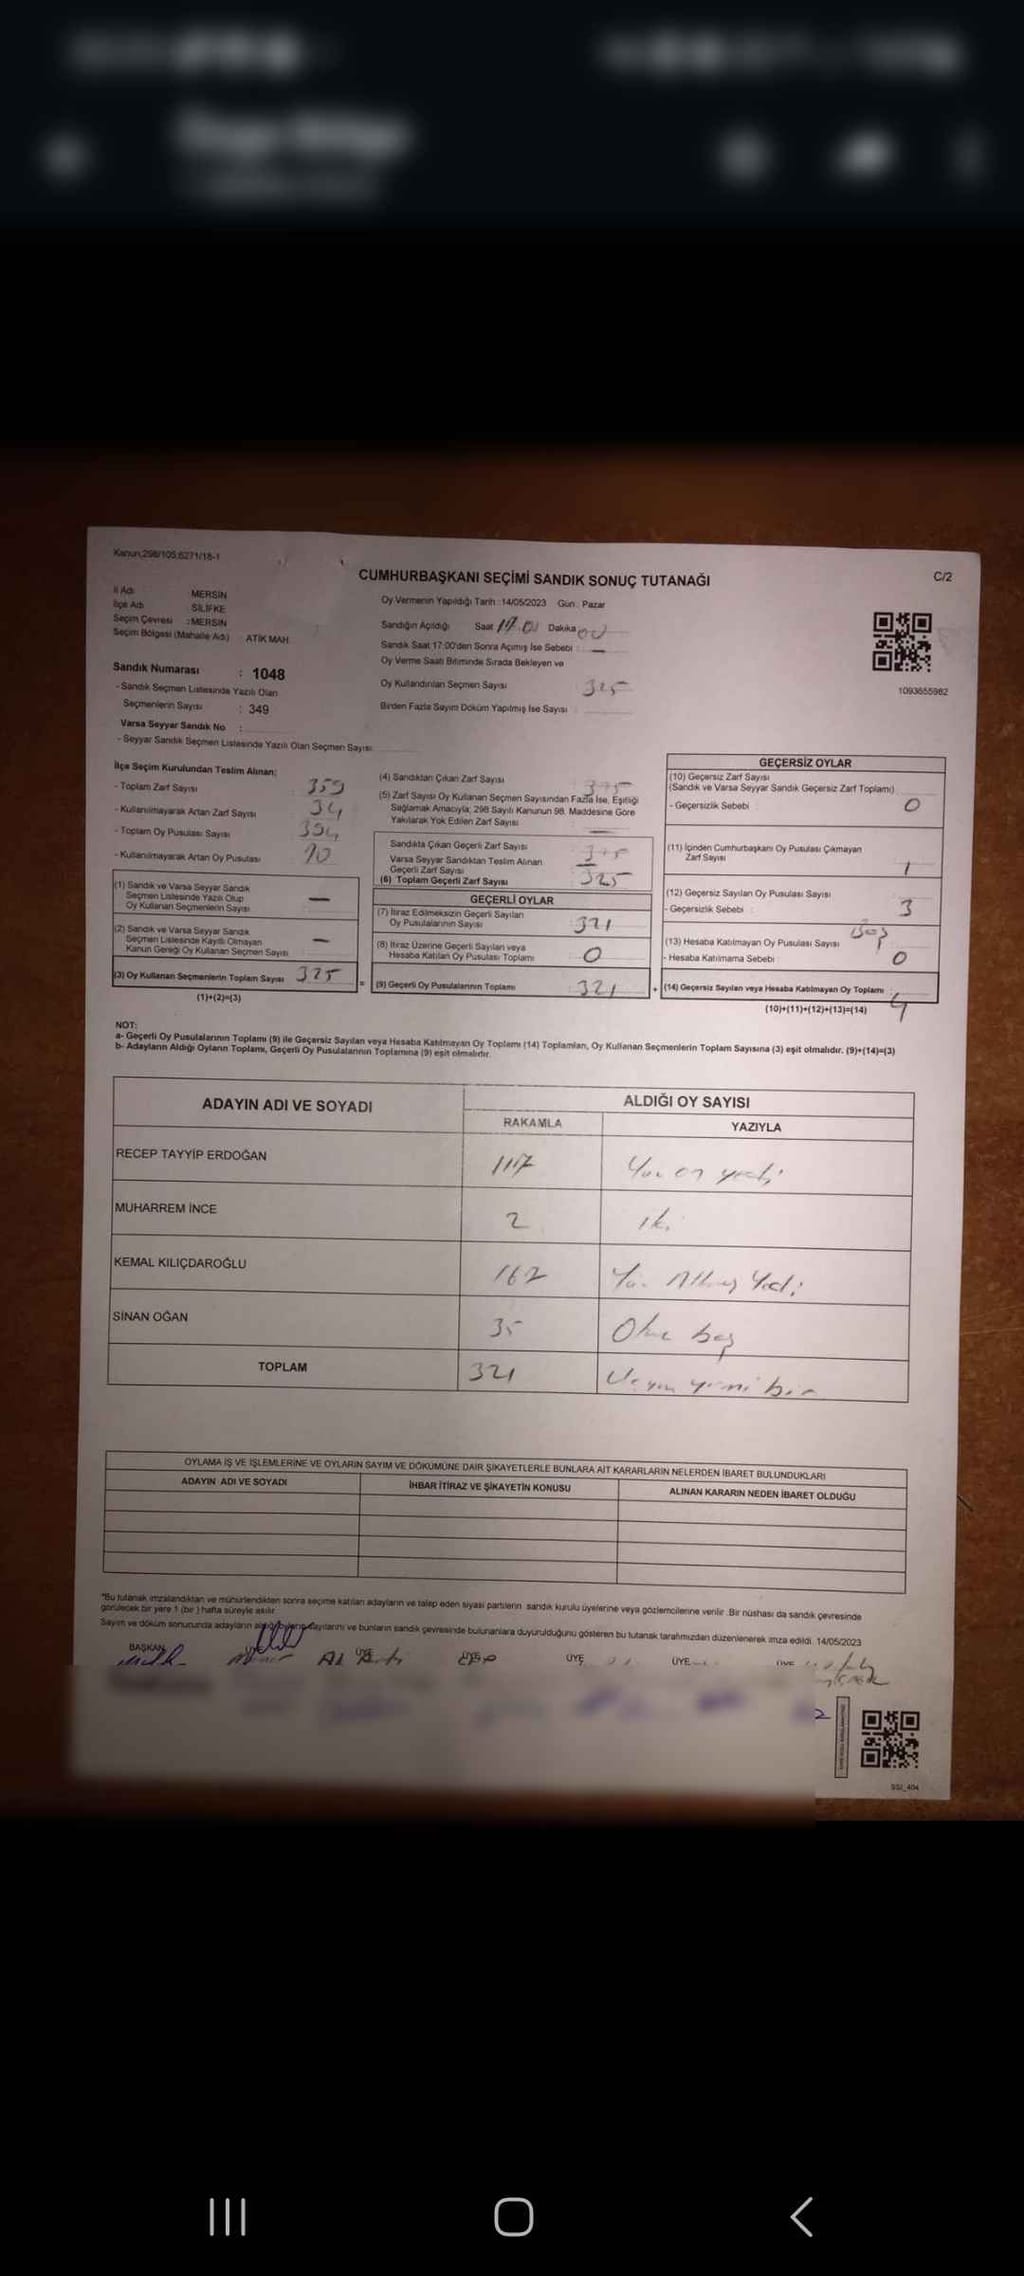 Kanun:298/105;6271/18-1
C/2
CUMHURBAŞKANI SEÇİMİ SANDIK SONUÇ TUTANAĞI
İl Adı MERSİN
İlçe Adı SİLİFKE
Seçim Çevresi : MERSİN
Seçim Bölgesi (Mahalle Adı) ATİK MAH.
Sandık Numarası : 1048
- Sandık Seçmen Listesinde Yazılı Olan
Seçmenlerin Sayısı : 349
Varsa Seyyar Sandık No :
- Seyyar Sandık Seçmen Listesinde Yazılı Olan Seçmen Sayısı:
Oy Vermenin Yapıldığı Tarih : 14/05/2023 Gün : Pazar
Sandığın Açıldığı Saat Dakika 00
Sandık Saat 17:00'den Sonra Açımış İse Sebebi : —
Oy Verme Saati Bitiminde Sırada Bekleyen ve
Oy Kullandırılan Seçmen Sayısı 325
Birden Fazla Sayım Döküm Yapılmış İse Sayısı :
1093655982
İlçe Seçim Kurulundan Teslim Alınan:
- Toplam Zarf Sayısı 359
- Kullanılmayarak Artan Zarf Sayısı 34
- Toplam Oy Pusulası Sayısı
- Kullanılmayarak Artan Oy Pusulası
(1) Sandık ve Varsa Seyyar Sandık
Seçmen Listesinde Yazılı Olup
Oy Kullanan Seçmenlerin Sayısı —
(2) Sandık ve Varsa Seyyar Sandık
Seçmen Listesinde Kayıtlı Olmayan
Kanun Gereği Oy Kullanan Seçmen Sayısı —
(3) Oy Kullanan Seçmenlerin Toplam Sayısı 325
(1)+(2)=(3)
(4) Sandıktan Çıkan Zarf Sayısı 325
(5) Zarf Sayısı Oy Kullanan Seçmen Sayısından Fazla İse, Eşitliği
Sağlamak Amacıyla; 298 Sayılı Kanunun 98. Maddesine Göre
Yakılarak Yok Edilen Zarf Sayısı —
Sandıkta Çıkan Geçerli Zarf Sayısı 325
Varsa Seyyar Sandıktan Teslim Alınan
Geçerli Zarf Sayısı —
(6) Toplam Geçerli Zarf Sayısı 325
GEÇERLİ OYLAR
(7) İtiraz Edilmeksizin Geçerli Sayılan
Oy Pusulalarının Sayısı 321
(8) İtiraz Üzerine Geçerli Sayılan veya
Hesaba Katılan Oy Pusulası Toplamı 0
= (9) Geçerli Oy Pusulalarının Toplamı 321
GEÇERSİZ OYLAR
(10) Geçersiz Zarf Sayısı
(Sandık ve Varsa Seyyar Sandık Geçersiz Zarf Toplamı)
- Geçersizlik Sebebi : 0
(11) İçinden Cumhurbaşkanı Oy Pusulası Çıkmayan
Zarf Sayısı 1
(12) Geçersiz Sayılan Oy Pusulası Sayısı 3
- Geçersizlik Sebebi :
(13) Hesaba Katılmayan Oy Pusulası Sayısı
- Hesaba Katılmama Sebebi : 0
+ (14) Geçersiz Sayılan veya Hesaba Katılmayan Oy Toplamı : 4
(10)+(11)+(12)+(13)=(14)
NOT:
a- Geçerli Oy Pusulalarının Toplamı (9) ile Geçersiz Sayılan veya Hesaba Katılmayan Oy Toplamı (14) Toplamları, Oy Kullanan Seçmenlerin Toplam Sayısına (3) eşit olmalıdır. (9)+(14)=(3)
b- Adayların Aldığı Oyların Toplamı, Geçerli Oy Pusulalarının Toplamına (9) eşit olmalıdır.
ADAYIN ADI VE SOYADI ALDIĞI OY SAYISI
RAKAMLA YAZIYLA
RECEP TAYYİP ERDOĞAN 117 Yüz on yedi
MUHARREM İNCE 2 iki
KEMAL KILIÇDAROĞLU 167 Yüz Altmış Yedi
SİNAN OĞAN 35 Otuz beş
TOPLAM 321 Üçyüz yirmi bir
OYLAMA İŞ VE İŞLEMLERİNE VE OYLARIN SAYIM VE DÖKÜMÜNE DAİR ŞİKAYETLERLE BUNLARA AİT KARARLARIN NELERDEN İBARET BULUNDUKLARI
ADAYIN ADI VE SOYADI İHBAR İTİRAZ VE ŞİKAYETİN KONUSU ALINAN KARARIN NEDEN İBARET OLDUĞU
*Bu tutanak imzalandıktan ve mühürlendikten sonra seçime katılan adayların ve talep eden siyasi partilerin sandık kurulu üyelerine veya gözlemcilerine verilir. Bir nüshası da sandık çevresinde
görülecek bir yere 1 (bir) hafta süreyle asılır.
Sayım ve döküm sonucunda adayların sayılarını ve bunların sandık çevresinde bulunanlara duyurulduğunu gösteren bu tutanak tarafımızdan düzenlenerek imza edildi. 14/05/2023
BAŞKAN ÜYE ÜYE ÜYE ÜYE ÜYE
SSI_404